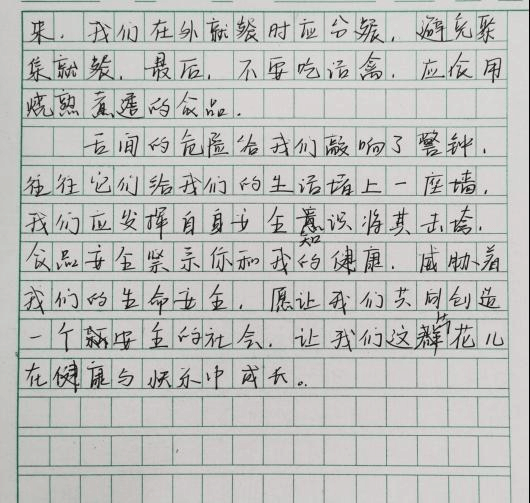 来，我们在外就餐时应分餐，避免聚
集就餐，最后，不要吃活禽，应食用
烧熟煮透的食品．
舌间的危险给我们敲响了警钟，
往往它们给我们的生活堵上一座墙，
我们应发挥自身安全意识将其击垮，
食品安全紧系你和我的健康，威胁着
我们的生命安全，愿让我们共同创造
一个安全的社会，让我们这群花儿
在健康与快乐中成长。